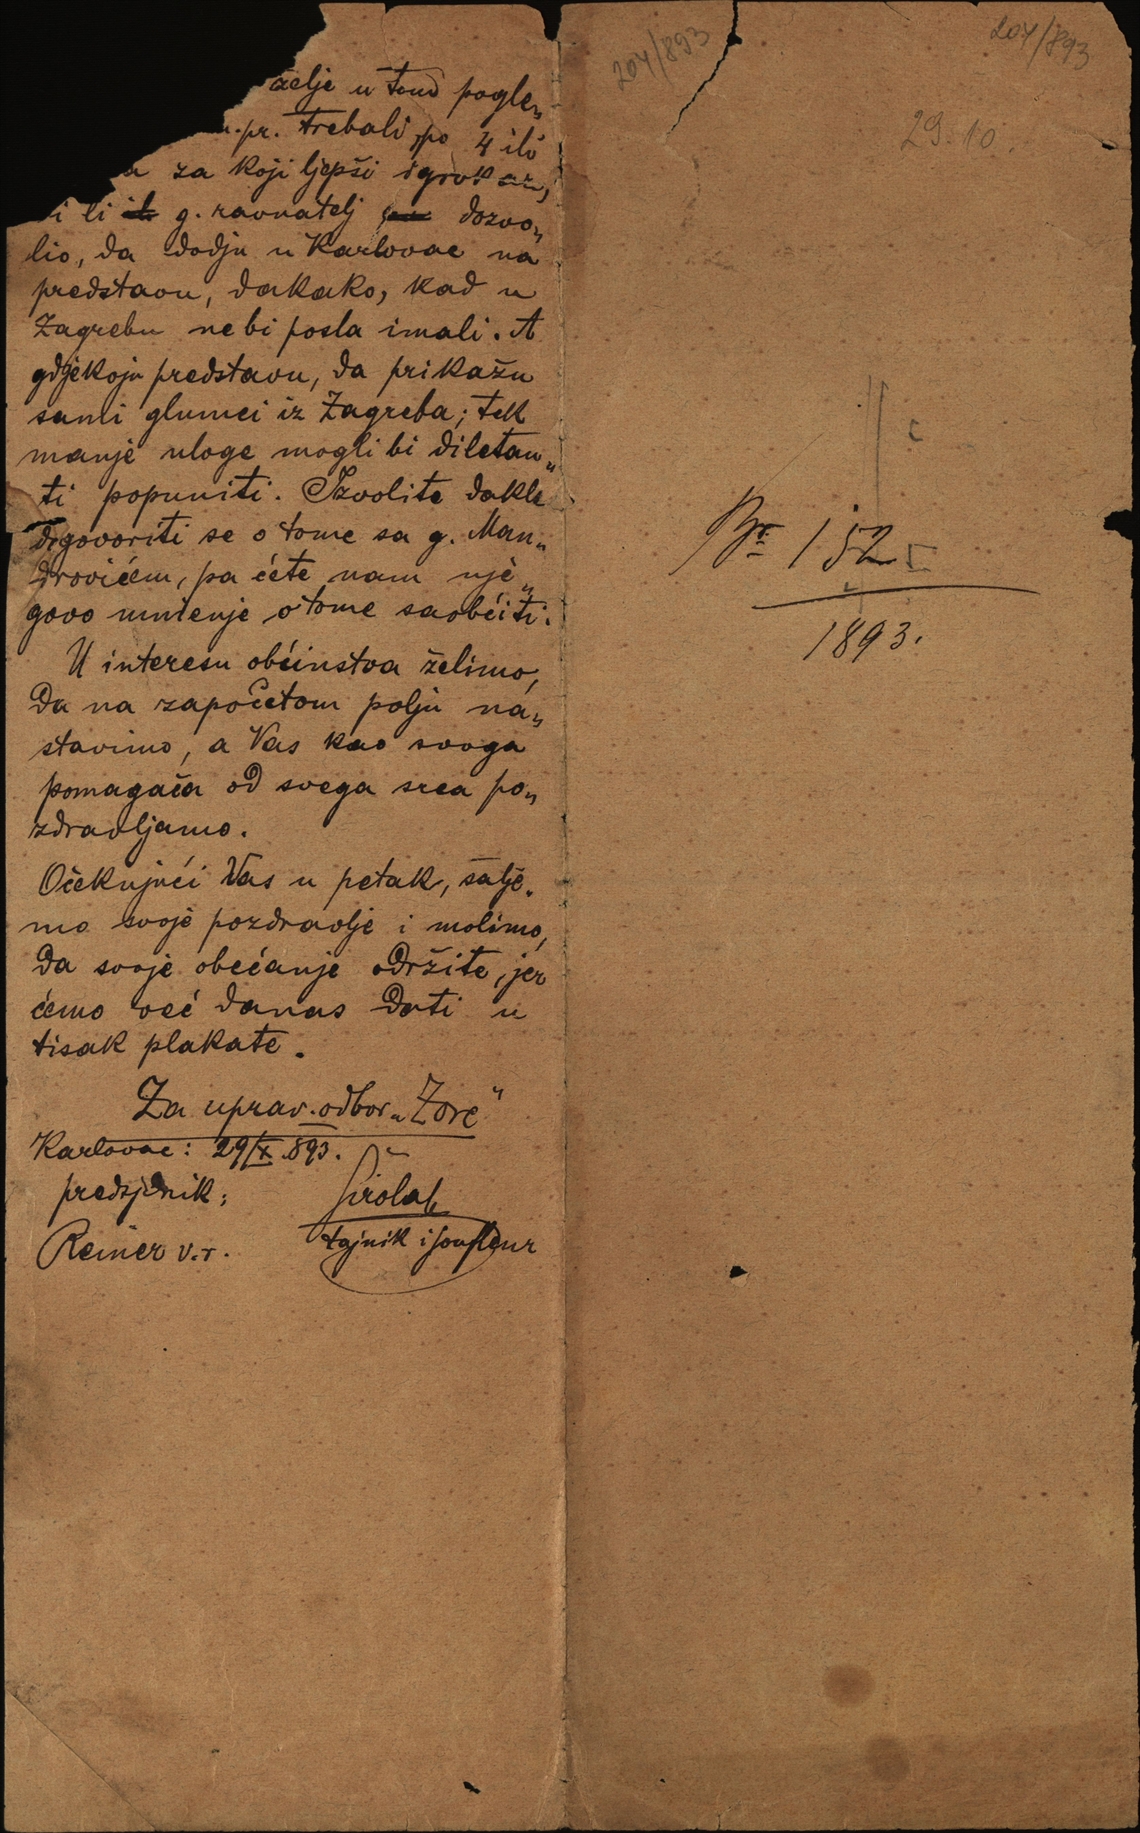 želje u tom pogle„
n. pr. trebali po 4 ili
a za koji ljepši igrokaz,
bi li g. ravnatelj dozvo„
lio, da dodju u Karlovac na
predstavu, dakako, kad u
Zagrebu ne bi posla imali. A
gdjekoju predstavu, da prikažu
sami glumci iz Zagreba; tek
manje uloge mogli bi diletan„
ti popuniti. Izvolite dakle
dogovoriti se o tome sa g. Man„
drovićem, pa ćete nam nje„
govo mnienje o tome saobćiti.
U interesu obćinstva želimo,
da na započetom polju na„
stavimo, a Vas kao svoga
pomagača od svega srca po„
zdravljamo.
Očekujući Vas u petak, šalje„
mo svoje pozdravlje i molimo,
da svoje obećanje održite, jer
ćemo već danas dati u
tisak plakate.
Za uprav. odbor „Zore“
Karlovac: 29/X. 893.
predsjednik:
Reiner v. r.
Širola
tajnik i souffleur
204/893
204/893
29. 10.
Br. 152
1893.